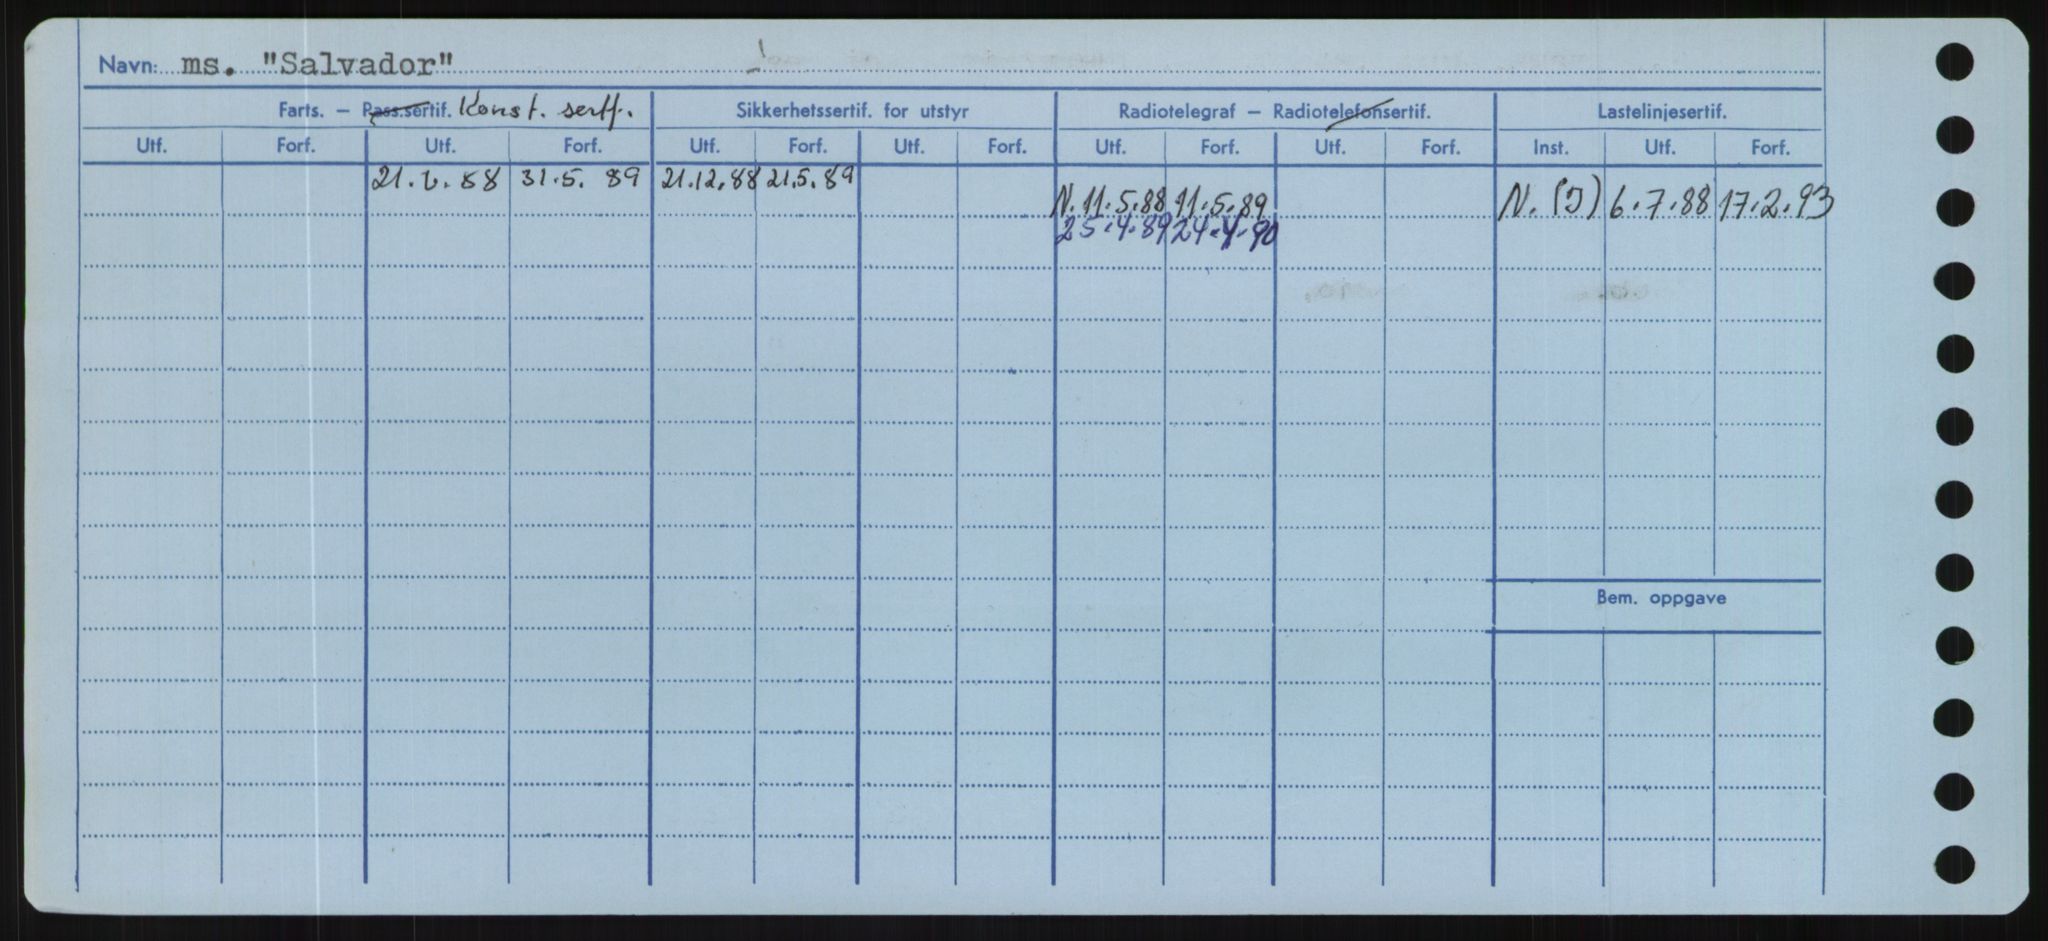 Navn: ms. "Salvador"
Farts. — Pass.sertif. Konst. sertf. Sikkerhetssertif. for utstyr Radiotelegraf — Radiotelefonsertif. Lastelinjesertif.
Utf. Forf. Utf. Forf. Utf. Forf. Utf. Forf. Utf. Forf. Utf. Forf. Inst. Utf. Forf.
31.5. 89 21.12.88 21.5.89
N. 11.5.88 11.5.89 N. 6.7.88 17.2.93
25.4.89 24.4.90
Bem. oppgave